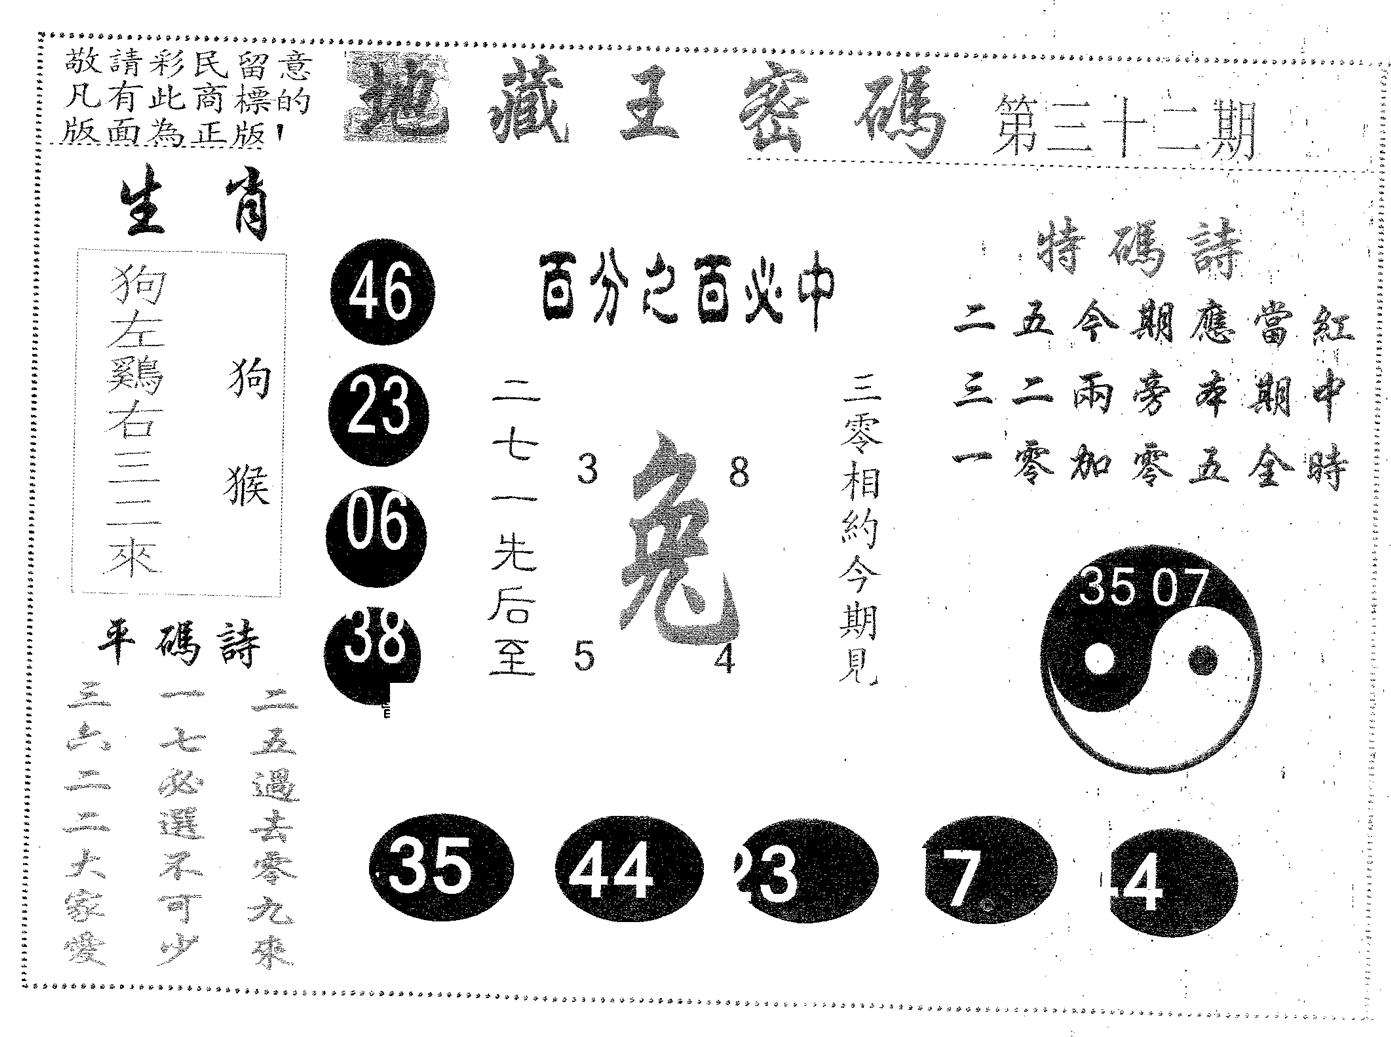 敬請彩民留意
凡有此商標的
版面為正版!
地藏王密碼
第三十二期
生肖
狗左鷄右三二來
狗
猴
46
23
06
38
百分之百必中
二七一先后至
3
8
兔
5
4
三零相約今期見
特碼詩
二五今期應當紅
三二兩旁本期中
一零加零五全時
35 07
平碼詩
二五過去零九來
一七必選不可少
三六二二大家愛
35
44
23
7
4